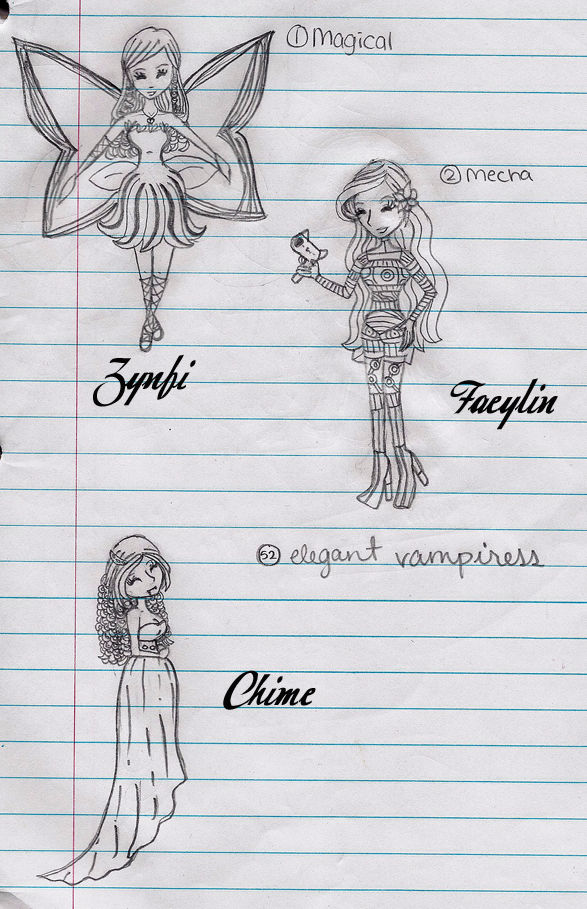 ① Magical
② mecha
Zynfi
Faeylin
52 elegant vampiress
Chime